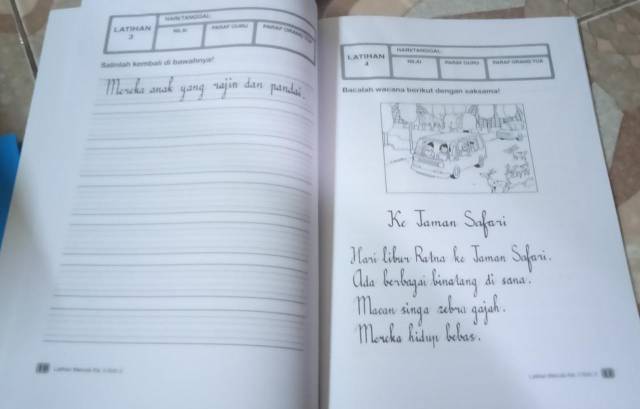 LATIHAN
3
HARI/TANGGAL:
NILAI
PARAF GURU
PARAF ORANG TUA
Salinlah kembali di bawahnya!
Mereka anak yang rajin dan pandai.
LATIHAN
4
HARI/TANGGAL:
NILAI
PARAF GURU
PARAF ORANG TUA
Bacalah wacana berikut dengan saksama!
Ke Taman Safari
Hari libur Ratna ke Taman Safari.
Ada berbagai binatang di sana.
Macan singa zebra gajah.
Mereka hidup bebas.